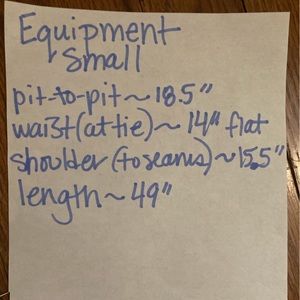 Equipment
Small
pit-to-pit ~ 18.5"
waist (at tie) ~ 14" flat
shoulder (to seams) ~ 15.5"
length ~ 49"